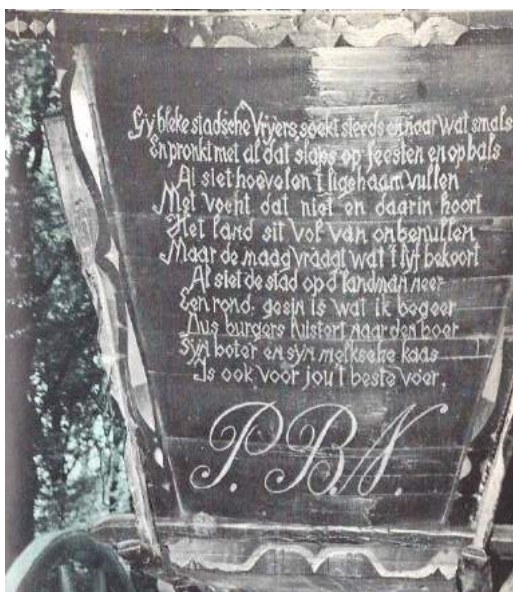 Gy bleke stadsche Vryers soekt steeds en naar wat smals
En pronkt met al dat slaps op feesten en op bals
Al siet hoevelen 't ligehaam vullen
Met vocht dat niet en daarin hoort
Het land sit vol van onbenullen
Maar de maag vraagt wat 't lyf bekoort
Al siet de stad op d' landman neer
Een rond gesin is wat ik begeer
Dus burgers luistert naar den boer
Syn boter en syn melksche kaas
Is ook voor jou 't beste voer.
P.B.N.